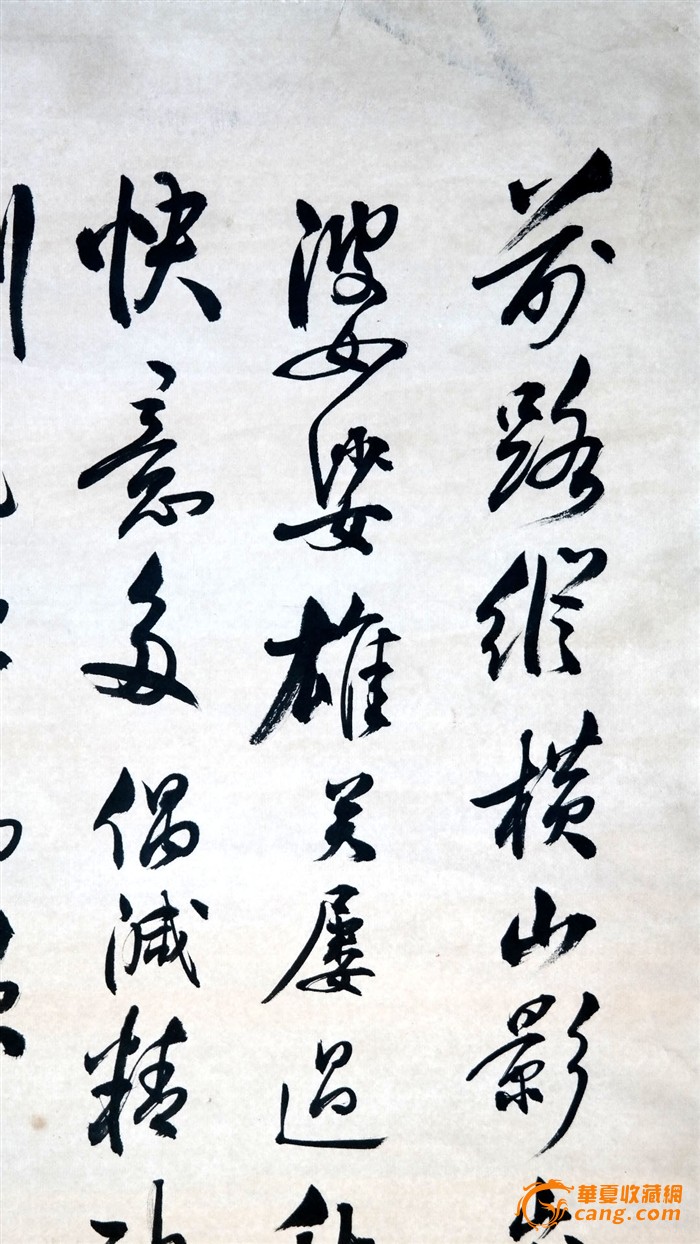 前路纵横山影
婆娑雄关屡过
快意多偶减精
華夏收藏網
cang.com